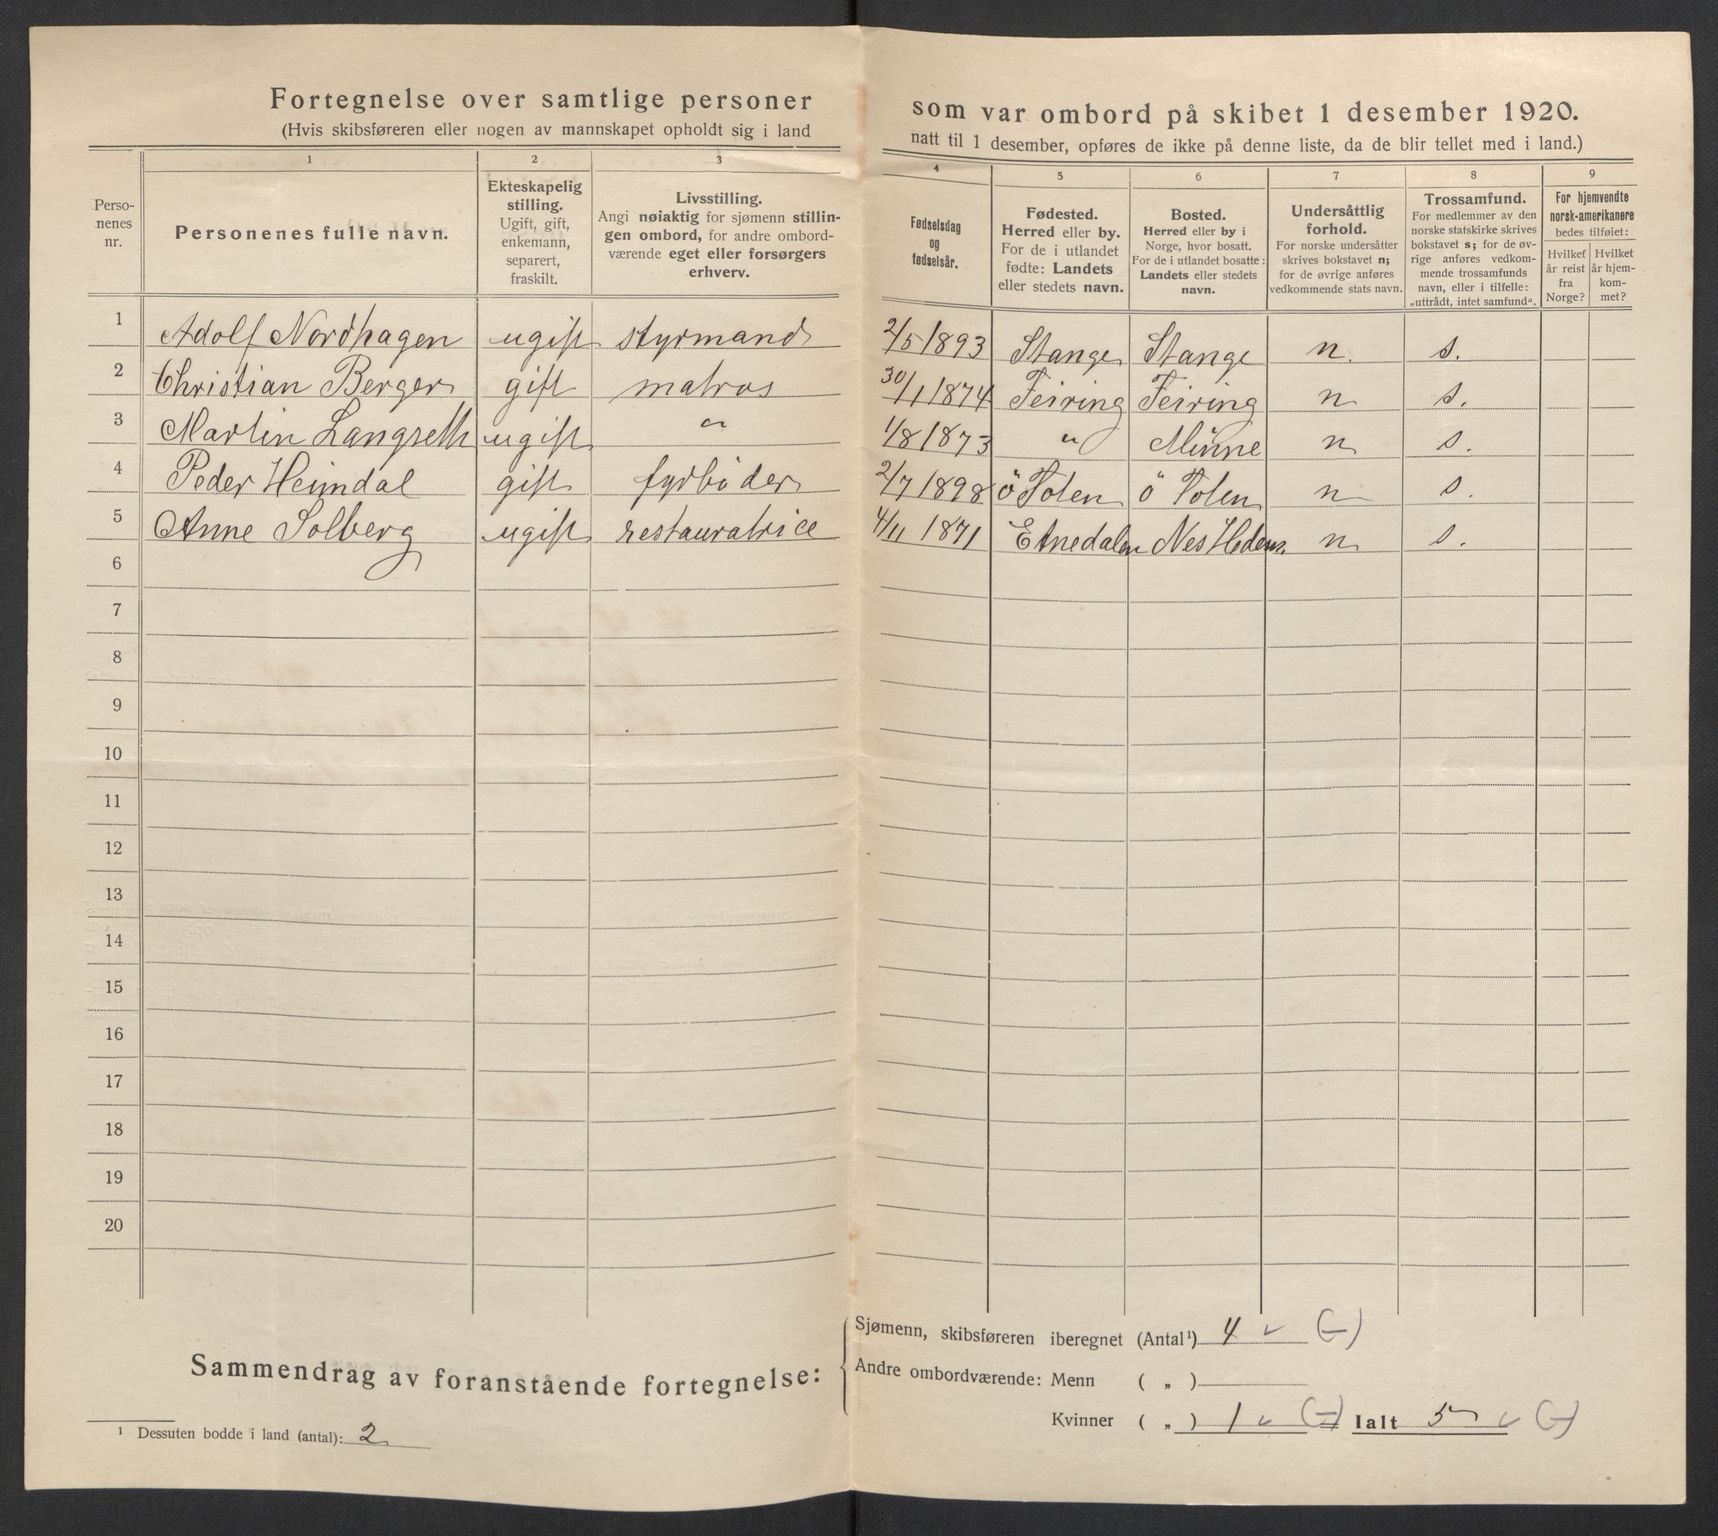 Fortegnelse over samtlige personer som var ombord på skibet 1 desember 1920.
(Hvis skibsføreren eller nogen av mannskapet opholdt sig i land natt til 1 desember, opføres de ikke på denne liste, da de blir tellet med i land.)
1 2 3 4 5 6 7 8 9
Personenes nr.
Personenes fulle navn.
Ekteskapelig stilling. Ugift, gift, enkemann, separert, fraskilt.
Livsstilling. Angi nøiaktig for sjømenn stillingen ombord, for andre ombordværende eget eller forsørgers erhverv.
Fødselsdag og fødselsår.
Fødested. Herred eller by. For de i utlandet fødte: Landets eller stedets navn.
Bosted. Herred eller by i Norge, hvor bosatt. For de i utlandet bosatte: Landets eller stedets navn.
Undersåttlig forhold. For norske undersåtter skrives bokstavet n; for de øvrige anføres vedkommende stats navn.
Trossamfund. For medlemmer av den norske statskirke skrives bokstavet s; for de øvrige anføres vedkommende trossamfunds navn, eller i tilfelle: „uttrådt, intet samfund“.
For hjemvendte norsk-amerikanere bedes tilføiet:
Hvilket år reist fra Norge?
Hvilket år hjemkommet?
1 Adolf Nordhagen ugift styrmand 2/5 1893 Stange Stange n. s.
2 Christian Berger gift matros 30/1 1874 Feiring Feiring n s.
3 Martin Langseth ugift " 1/8 1873 " Minne n s.
4 Peder Heimdal gift fyrbøder 2/7 1898 Ö Toten Ö Toten n s.
5 Anne Solberg ugift restauratrice 4/11 1871 Etnedalen Nes Hedem. n s.
6
7
8
9
10
11
12
13
14
15
16
17
18
19
20
Sammendrag av foranstående fortegnelse:
Sjømenn, skibsføreren iberegnet (Antal¹) 4 (-)
Andre ombordværende: Menn ( „ )
Kvinner ( „ ) 1 (-) Ialt 5 (-)
¹ Dessuten bodde i land (antal): 2